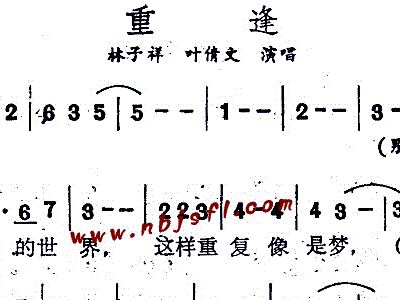 重 逢
林子祥 叶倩文 演唱
2 | 6 3 5 | 5 - - | 1 - - | 2 - - | 3 -
· 6 7 | 3 - - | 2 2 3 | 4 - 4 | 4 3 - | 3
的世 界, 这样重 复 像 是梦, (
www.nbjsfl.com